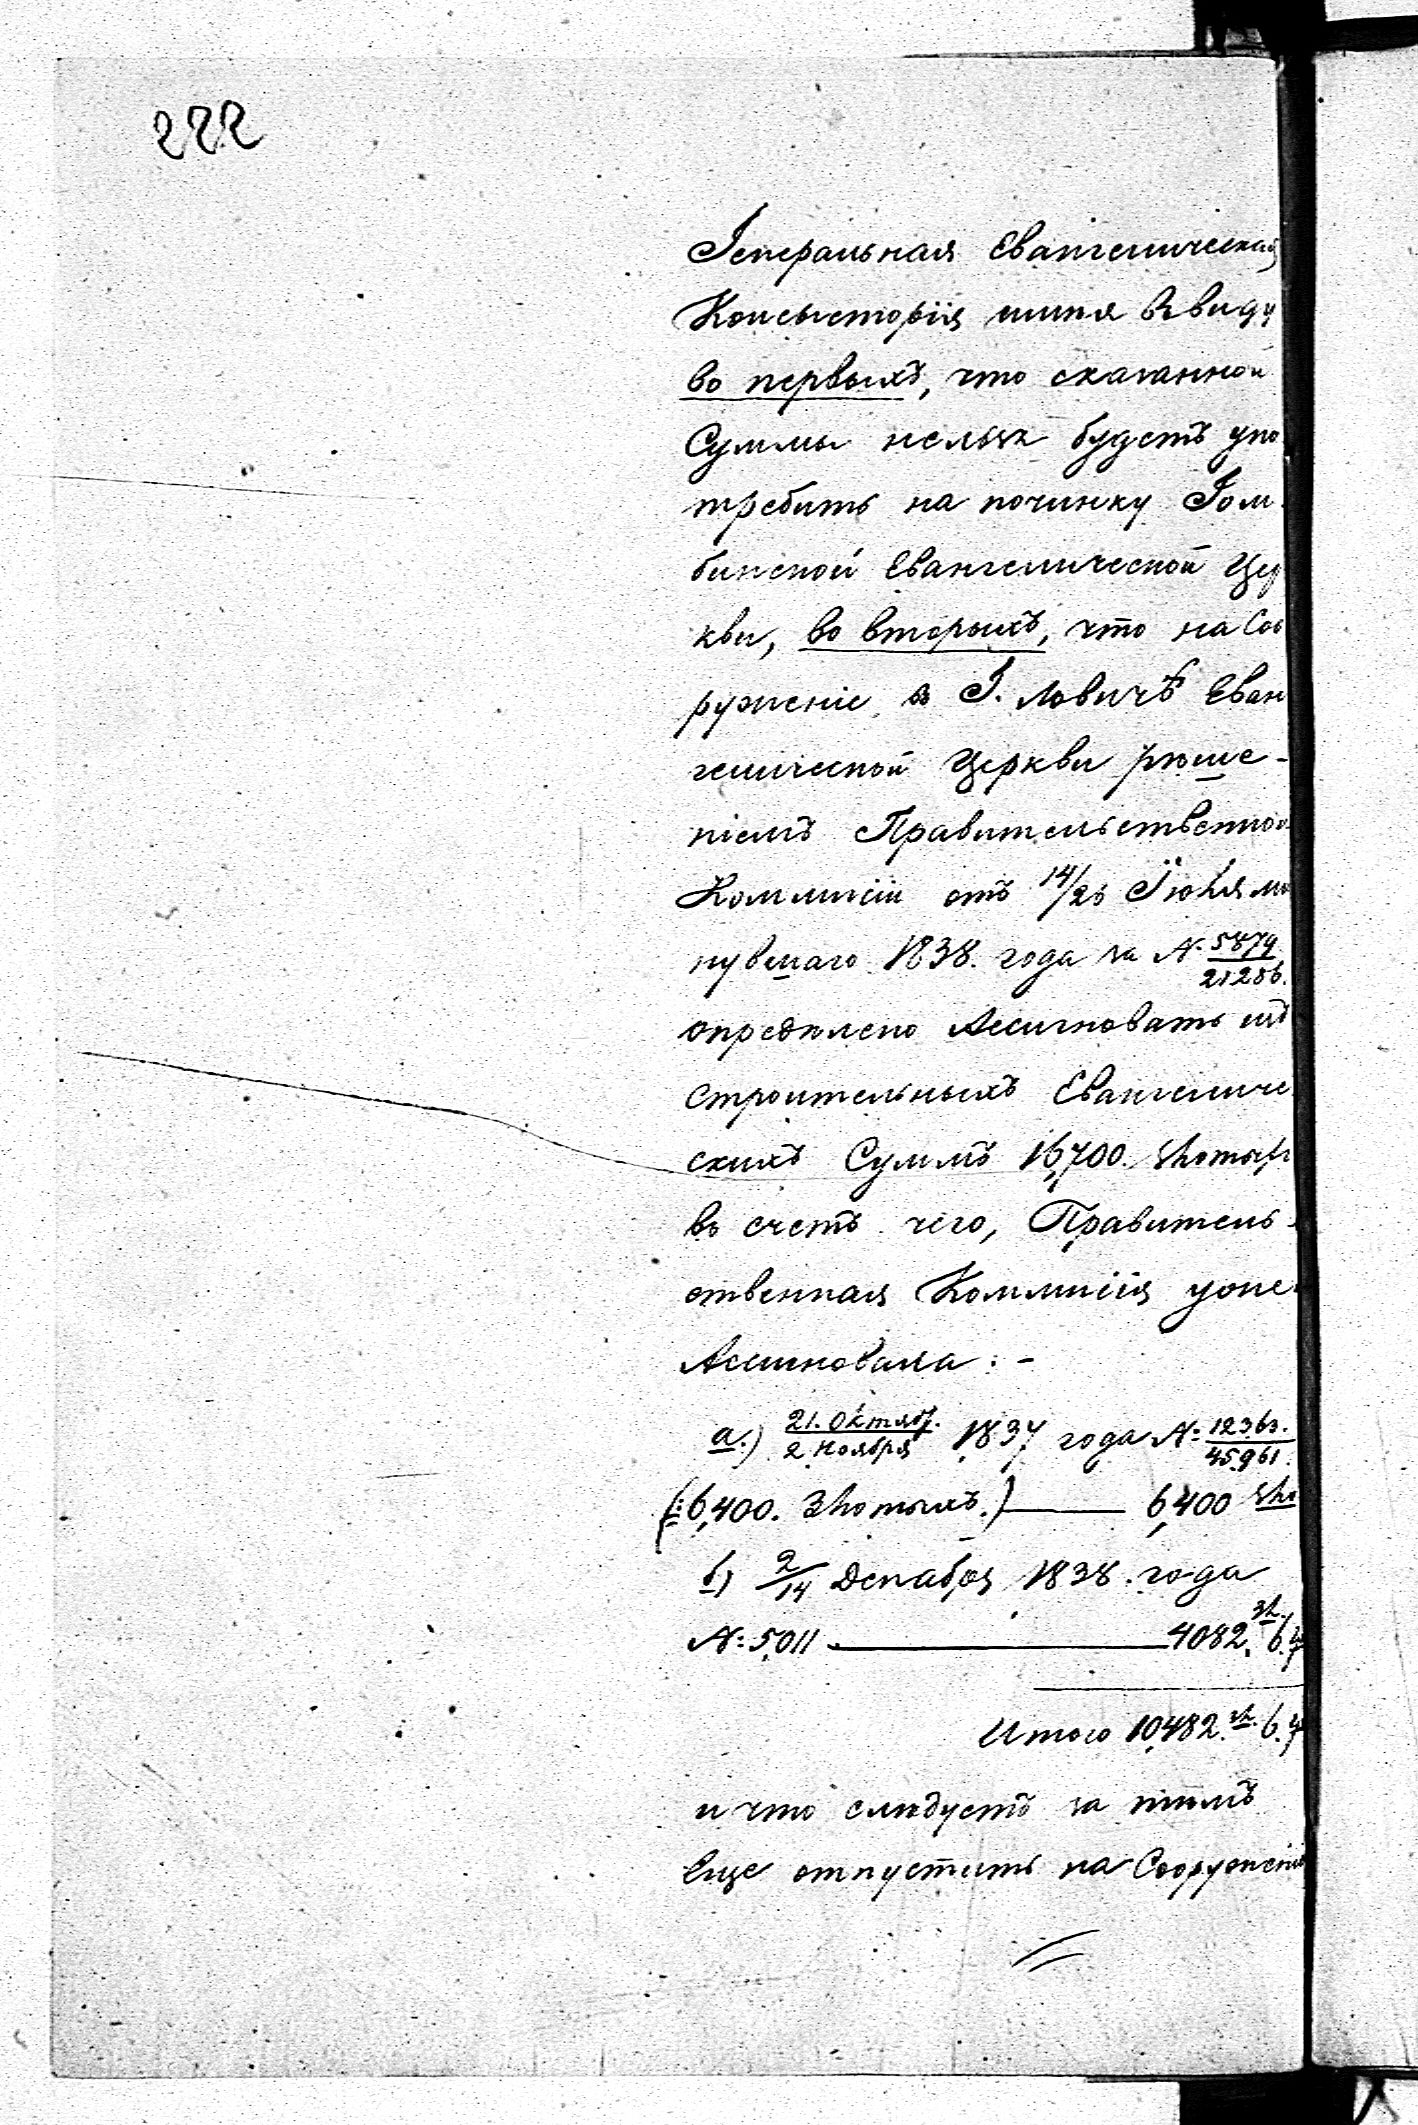 222
Генеральная Евангелическая
Консысторія имѣя въ виду
во первыхъ, что сказанной
Суммы нельзя будетъ упо
требить на починку Гом
бинской Евангелической Цер
кви, во вторыхъ, что на Соо
руженіе в Г. Ловичѣ Еван
гелической Церкви рѣше-
ніемъ Правительственной
Коммисіи отъ 14/26 Іюля ми
нувшаго 1838. года за №. 5879/21286.
опредѣлено Ассигновать изъ
строительныхъ Евангеличе
скихъ Суммъ 16,700. Злотыхъ
въ счетъ чего, Правитель-
ственная Коммисія уже
Ассигновала: -
а.) 21. Октяб./2 Ноября 1837 года №: 12363./45961.
(:6,400. Злотыхъ.) 6,400 Зло
б) 2/14 Декабря 1838. года
№: 5011 4082. зл. 6. г
Итого 10,482. зл. 6. г
и что слѣдуетъ за тѣмъ
еще отпустить на Сооруженіе